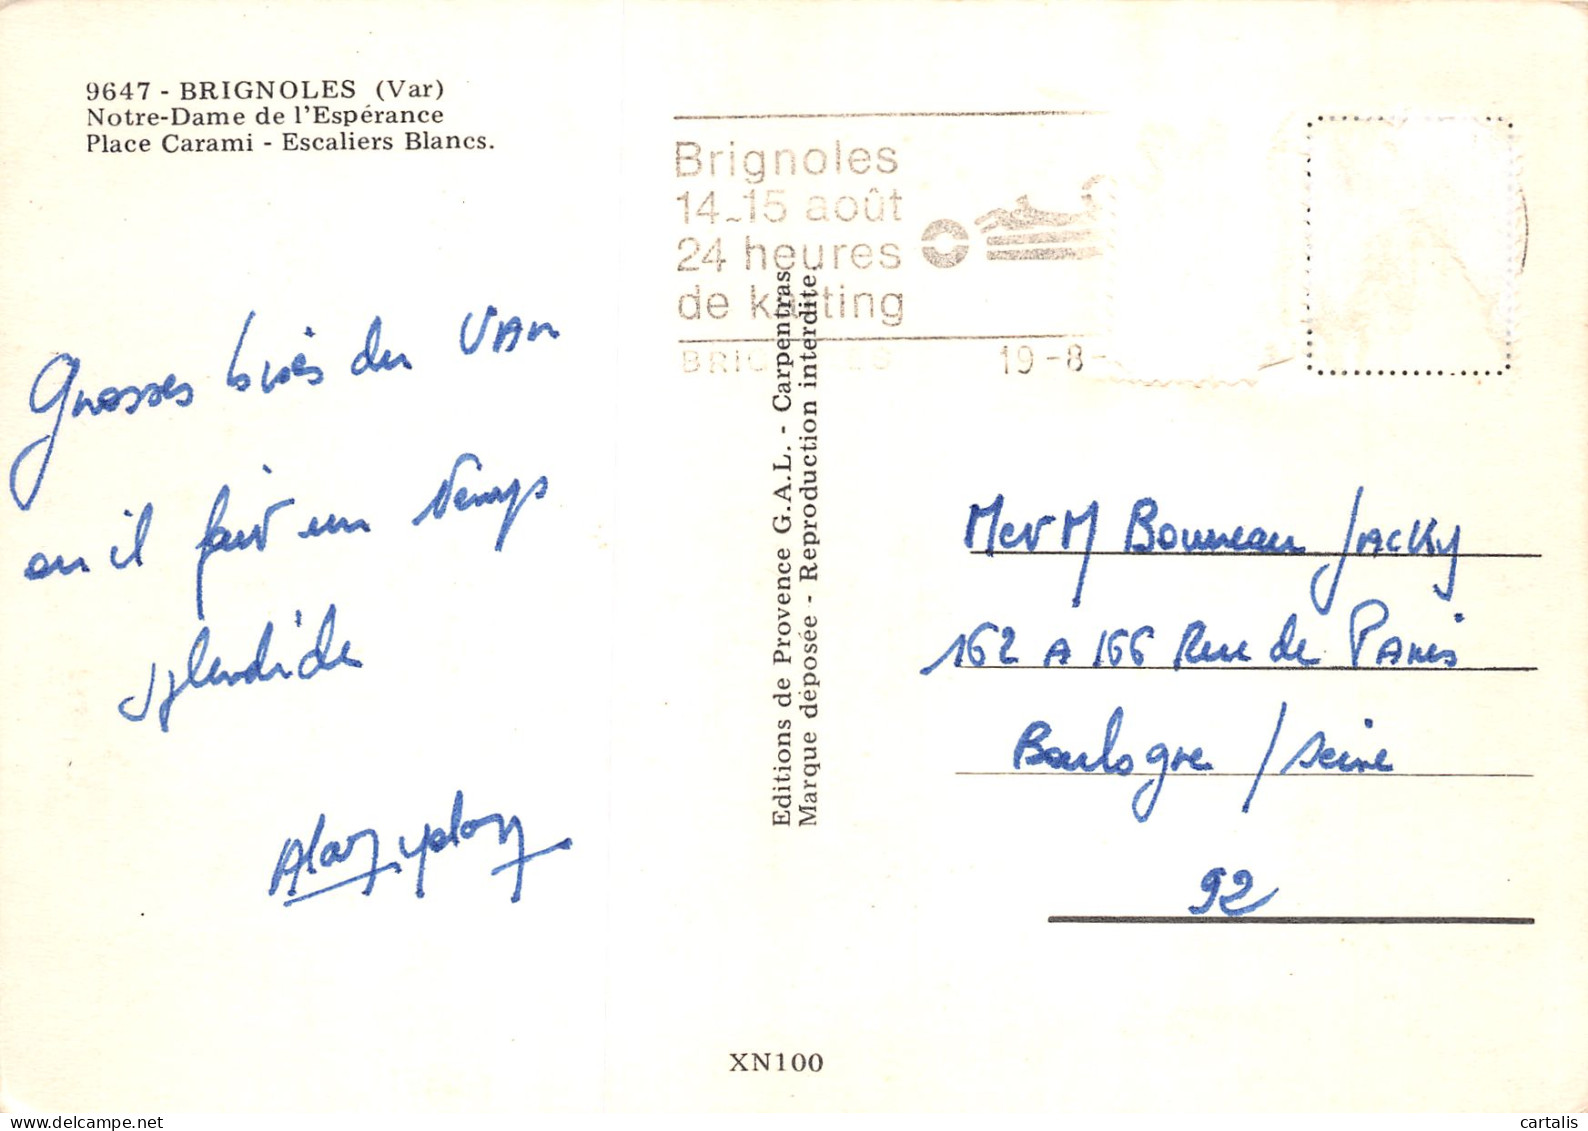 9647 - BRIGNOLES (Var)
Notre-Dame de l'Espérance
Place Carami - Escaliers Blancs.
Brignoles
14-15 août
24 heures
de karting
BRIGNOLES 19-8-
Grosses bises du VAR
ou il fait un temps
splendide
Editions de Provence G.A.L. - Carpentras.
Marque déposée - Reproduction interdite.
M et M Bonneau Jacky
162 A 166 Rue de Paris
Boulogne / seine
92
XN100
cartalis